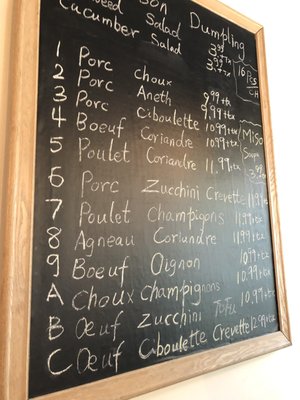 son Dumpling
weed Salad 3.99+tx
Cucumber Salad 3.99+tx
10 Pcs
/CH
1 Porc choux 9.99+tx
2 Porc Aneth 9.99+tx
3 Porc Ciboulette 10.99+tx
4 Boeuf Coriandre 10.99+tx
5 Poulet Coriandre 11.99+tx
Miso
Soupe
3.99
6 Porc Zucchini Crevette 11.99+tx
7 Poulet Champignons 11.99+tx
8 Agneau Coriandre 11.99+tx
9 Boeuf Oignon 10.99+tx
A Choux Champignons 10.99+tx
B Oeuf Zucchini Tofu 10.99+tx
C Oeuf Ciboulette Crevette 12.99+tx